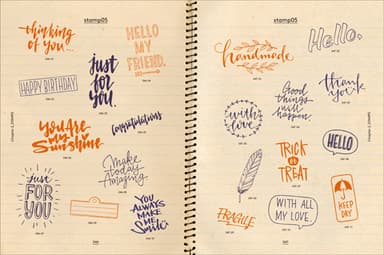 stamp05
thinking
of you...
HELLO
MY
FRIEND.
just
for
you.
HAPPY BIRTHDAY
YOU ARE
MY
SUNSHINE
Congratulations
Make
today
Amazing
just
FOR
YOU
YOU
ALWAYS
MAKE
ME
Smile
stamp05
handmade
Hello.
Good
things
will
happen.
thank
you.
with
love
HELLO
TRICK
OR
TREAT
FRAGILE
WITH ALL
MY LOVE.
KEEP
DRY